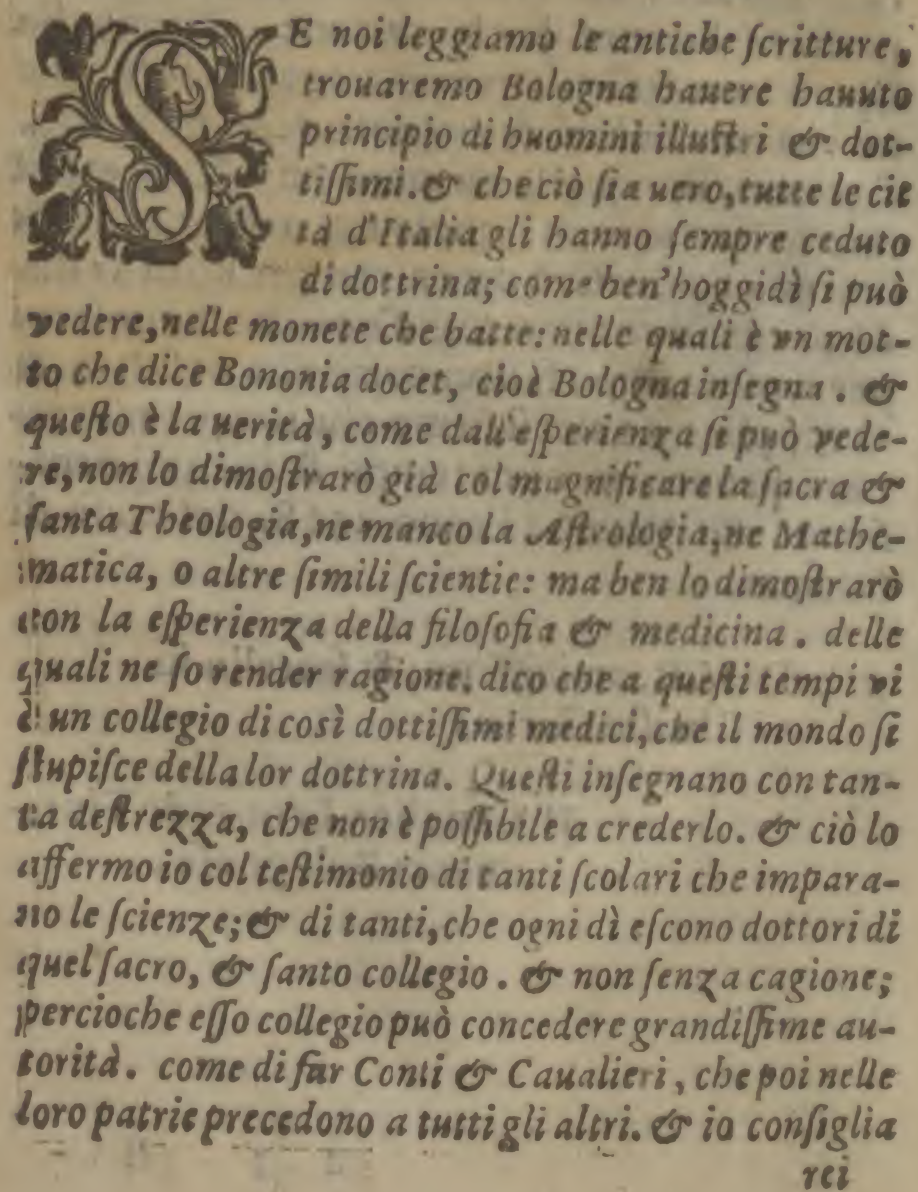 SE noi leggiamo le antiche ſcritture,
trouaremo Bologna hauere hauuto
principio di huomini illuſtri & dot-
tiſſimi. & che ciò ſia uero, tutte le cit
tà d'Italia gli hanno ſempre ceduto
di dottrina; come ben'hoggidì ſi può
vedere, nelle monete che batte: nelle quali è vn mot-
to che dice Bononia docet, cioè Bologna inſegna. &
queſto è la uerità, come dall'eſperienza ſi può vede-
re, non lo dimoſtrarò già col magnificare la ſacra &
ſanta Theologia, ne manco la Aſtrologia, ne Mathe-
matica, o altre ſimili ſcientie: ma ben lo dimoſtrarò
con la eſperienza della filoſofia & medicina. delle
quali ne ſo render ragione. dico che a queſti tempi vi
è un collegio di così dottiſſimi medici, che il mondo ſi
ſtupiſce della lor dottrina. Queſti inſegnano con tan-
ta deſtrezza, che non è poſſibile a crederlo. & ciò lo
affermo io col teſtimonio di tanti ſcolari che impara-
no le ſcienze; & di tanti, che ogni dì eſcono dottori di
quel ſacro, & ſanto collegio. & non ſenza cagione;
percioche eſſo collegio può concedere grandiſſime au-
torità. come di far Conti & Caualieri, che poi nelle
loro patrie precedono a tutti gli altri. & io conſiglia
rei